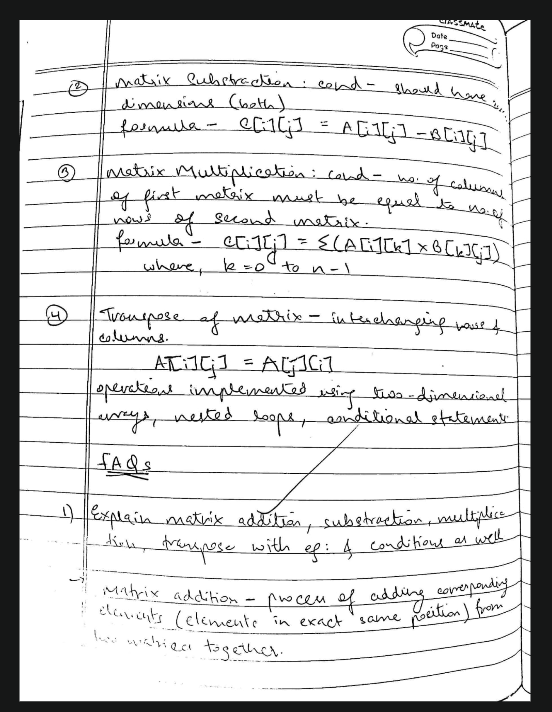 CLASSMATE
Date
Page
② Matrix Substraction : cond - should have same
dimensions (both)
formula - C[i][j] = A[i][j] - B[i][j]
③ Matrix Multiplication : cond - no. of columns
of first matrix must be equal to no. of
rows of second matrix.
formula - C[i][j] = Σ(A[i][k] × B[k][j])
where, k = 0 to n-1
④ Transpose of matrix - interchanging rows &
columns.
AT[i][j] = A[j][i]
operations implemented using two-dimensional
arrays, nested loops, conditional statement
FAQs
1) Explain matrix addition, substraction, multiplica
tion, transpose with eg: & conditions as well
→ Matrix addition - process of adding corresponding
elements (elements in exact same position) from
two matrices together.